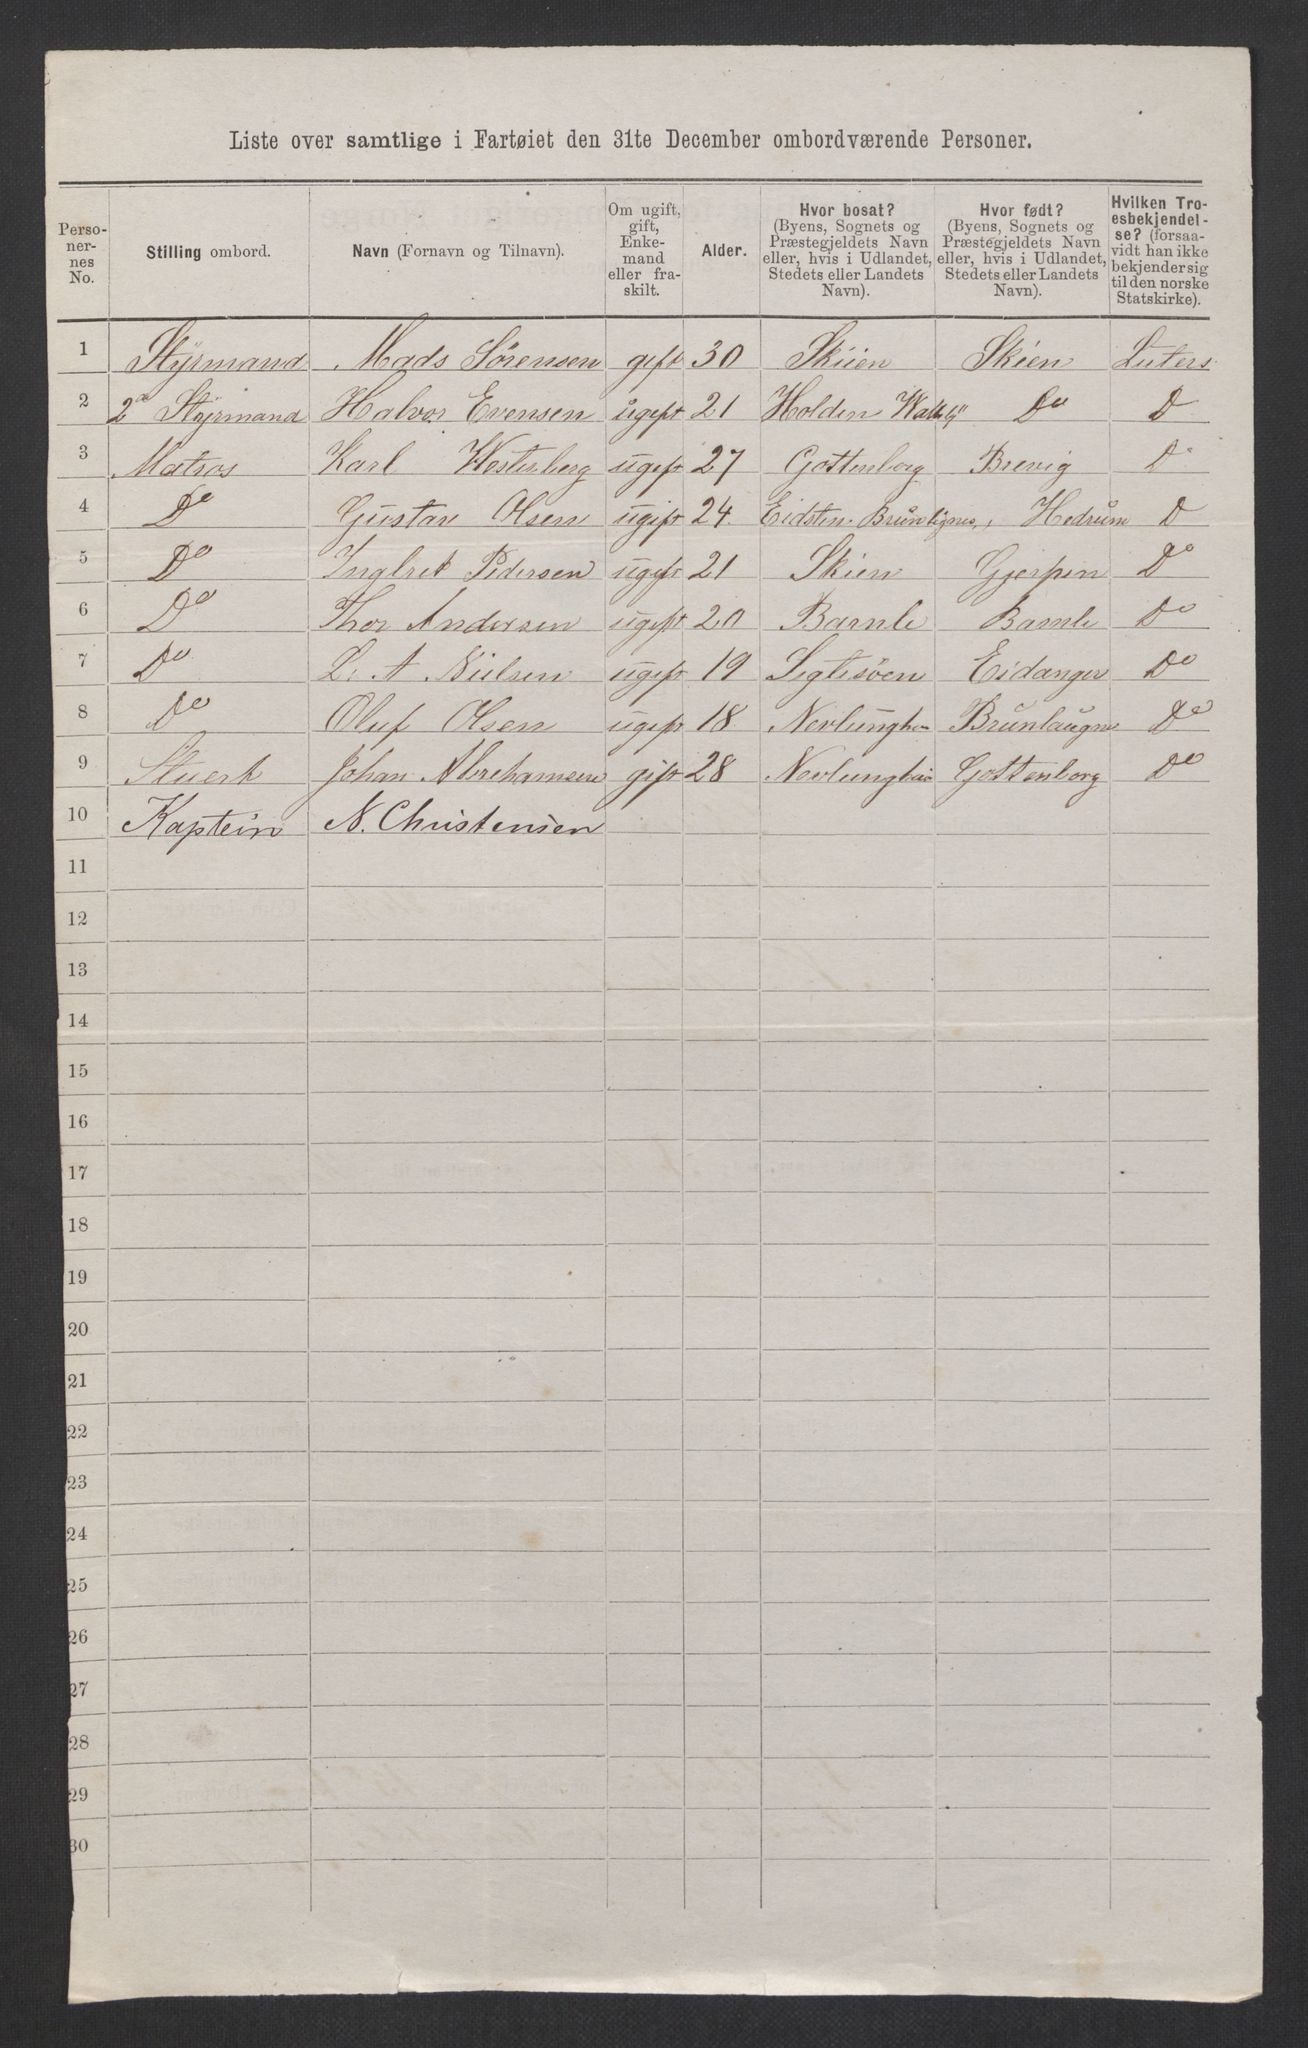 Liste over samtlige i Fartøiet den 31te December ombordværende Personer.
Personernes No. | Stilling ombord. | Navn (Fornavn og Tilnavn). | Om ugift, gift, Enkemand eller fraskilt. | Alder. | Hvor bosat? (Byens, Sognets og Præstegjeldets Navn eller, hvis i Udlandet, Stedets eller Landets Navn). | Hvor født? (Byens, Sognets og Præstegjeldets Navn eller, hvis i Udlandet, Stedets eller Landets Navn). | Hvilken Troesbekjendelse? (forsaavidt han ikke bekjender sig til den norske Statskirke).
1 Styrmand Mads Sörensen gift 30 Skiien Skien Luters
2 2n Styrmand Halvor Evensen ugift 21 Holden Do D
3 Matros Karl Westerberg ugift 27 Gottenborg Brevig D
4 Do Gustav Olsen ugift 24. Eidsten Brunlignes, Hedrum D
5 Do Inglret Pedersen ugift 21 Skien Gjerpen Do
6 Do Thor Andersen ugift 20 Bamle Bamle Do
7 Do L. A. Nielsen ugift 19 Sigtesöen Eidanger Do
8 Do Oluf Olsen ugift 18 Nevlungh Brunlaugn Do
9 Stuert Johan Abrehamsen gift 28 Nevlunghav Gottenborg Do
10 Kaptein N. Christensen
11
12
13
14
15
16
17
18
19
20
21
22
23
24
25
26
27
28
29
30